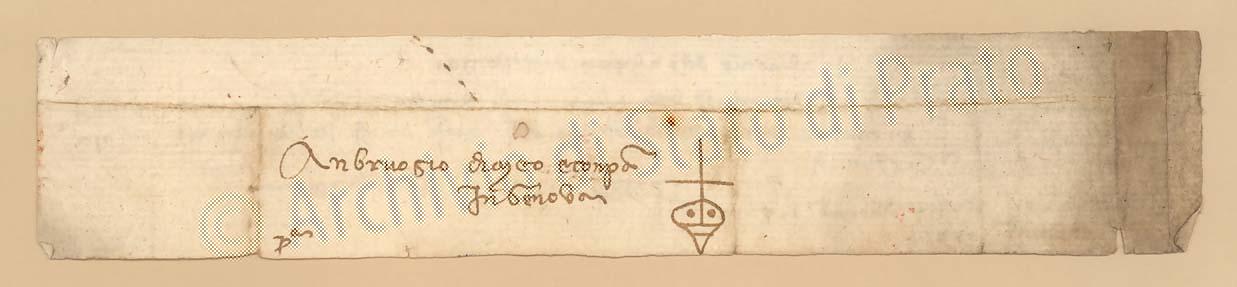 Anbruogio di Meo e conpa
In Genova
pa
© Archivio di Stato di Prato